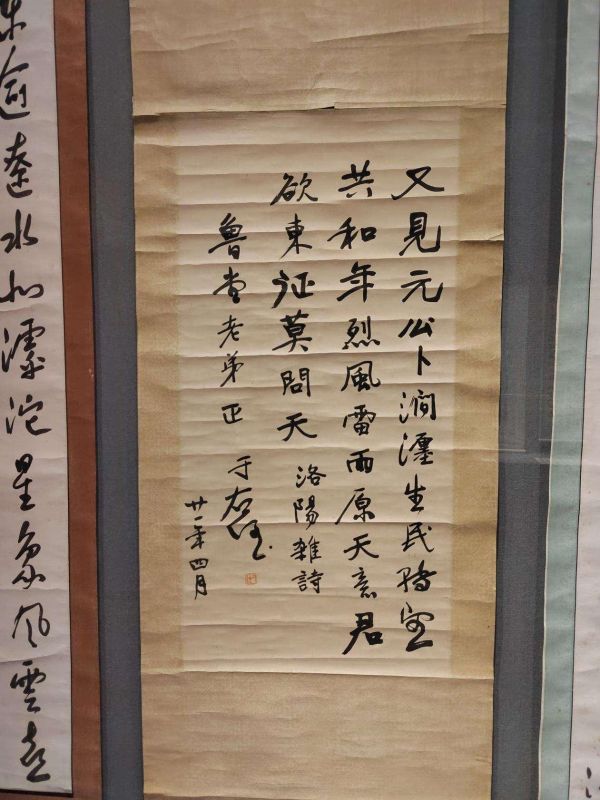 又見元公卜澗瀍生民
共和年烈風雷雨原天意君
欲東征莫問天
洛陽雜詩
魯堂老弟正
于右任
廿一年四月
東逾遼水北滹沱星象風雲喜